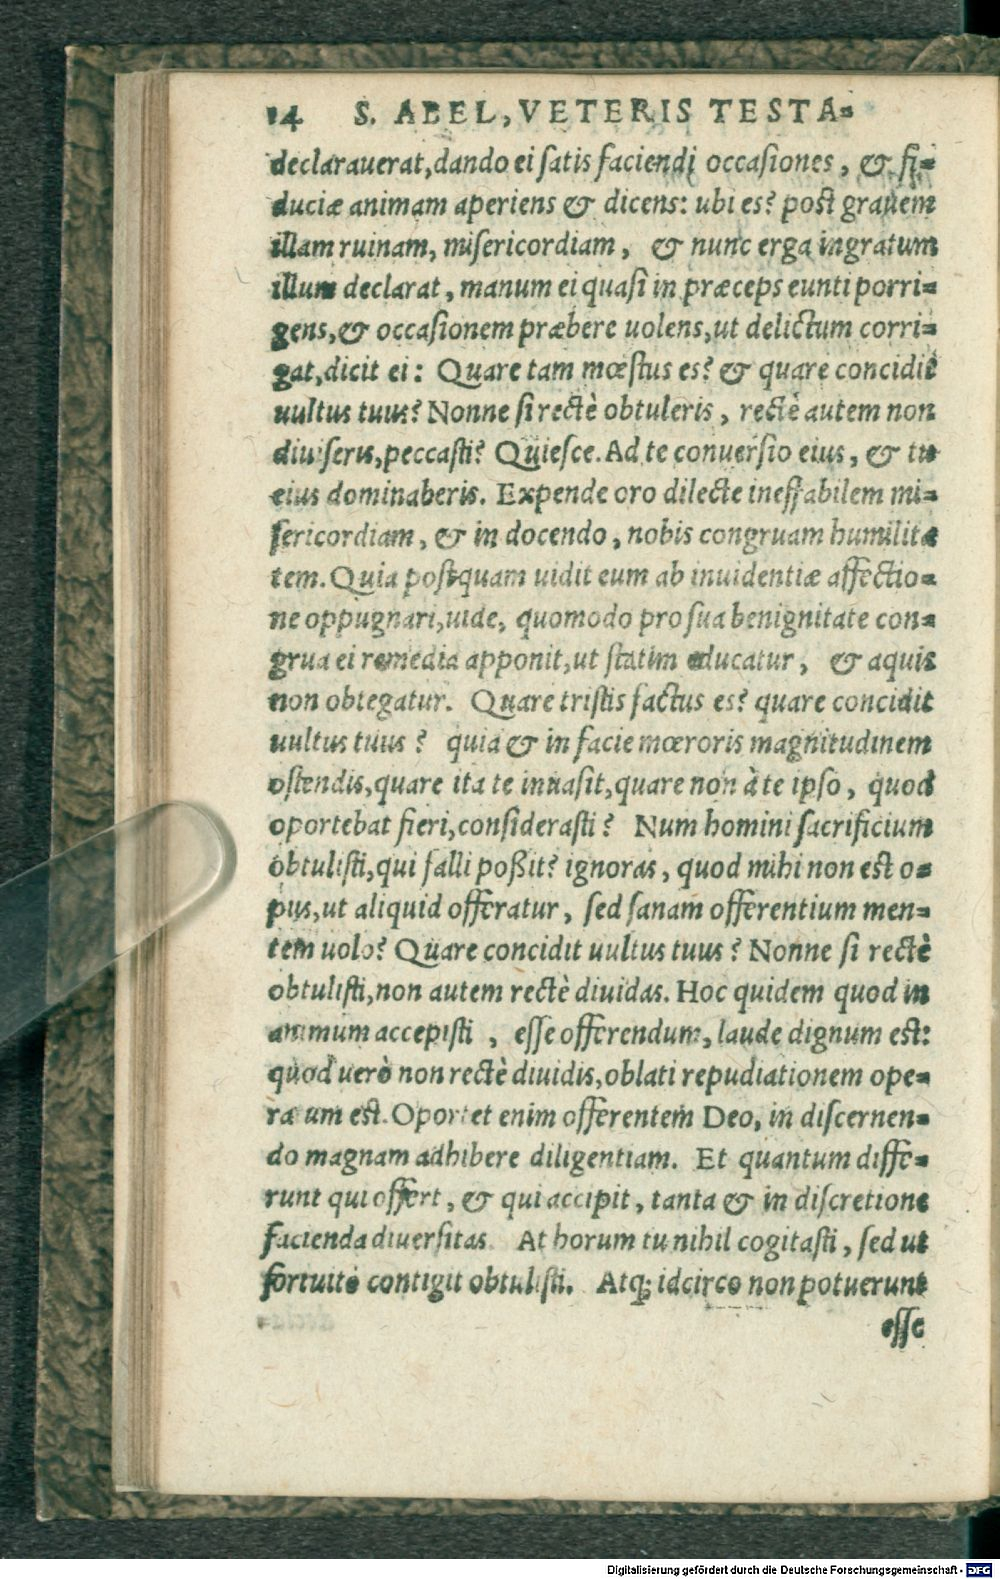 14 S. ABEL, VETERIS TESTA-
declarauerat, dando ei satis faciendi occasiones, & fi-
duciæ animam aperiens & dicens: ubi es? post grauem
illam ruinam, misericordiam, & nunc erga ingratum
illum declarat, manum ei quasi in præceps eunti porri-
gens, & occasionem præbere uolens, ut delictum corri-
gat, dicit ei: Quare tam mœstus es? & quare concidit
uultus tuus? Nonne si rectè obtuleris, rectè autem non
diuiseris, peccasti? Quiesce. Ad te conuersio eius, & tu
eius dominaberis. Expende oro dilecte ineffabilem mi-
sericordiam, & in docendo, nobis congruam humilita
tem. Quia postquam uidit eum ab inuidentiæ affectio-
ne oppugnari, uide, quomodo pro sua benignitate con-
grua ei remedia apponit, ut statim educatur, & aquis
non obtegatur. Quare tristis factus es? quare concidit
uultus tuus? quia & in facie mœroris magnitudinem
ostendis, quare ita te inuasit, quare non à te ipso, quod
oportebat fieri, considerasti? Num homini sacrificium
obtulisti, qui falli poßit? ignoras, quod mihi non est o-
pus, ut aliquid offeratur, sed sanam offerentium men-
tem uolo? Quare concidit uultus tuus? Nonne si rectè
obtulisti, non autem rectè diuidas. Hoc quidem quod in
animum accepisti, esse offerendum, laude dignum est:
quod uerò non rectè diuidis, oblati repudiationem ope-
ratum est. Oportet enim offerentem Deo, in discernen-
do magnam adhibere diligentiam. Et quantum diffe-
runt qui offert, & qui accipit, tanta & in discretione
facienda diuersitas. At horum tu nihil cogitasti, sed ut
fortuitò contigit obtulisti. Atq; idcirco non potuerunt
esse
Digitalisierung gefördert durch die Deutsche Forschungsgemeinschaft - DFG